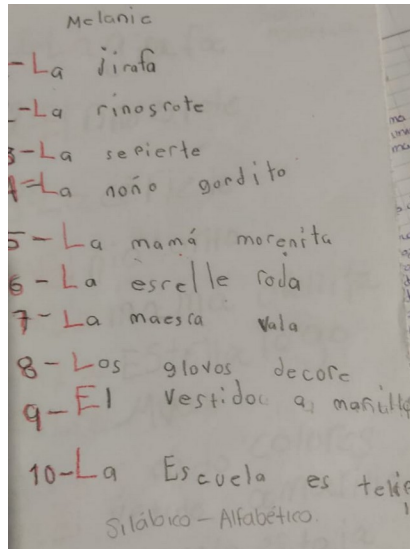 Melanie
-La jirafa
-La rinosrote
3-La sepierte
4-La noño gordito
5-La mamá morenita
6-La esrelle roda
7-La maesra vala
8-Los glovos decore
9-El vestidou a marillo
10-La Escuela es
Silábico-Alfabético.